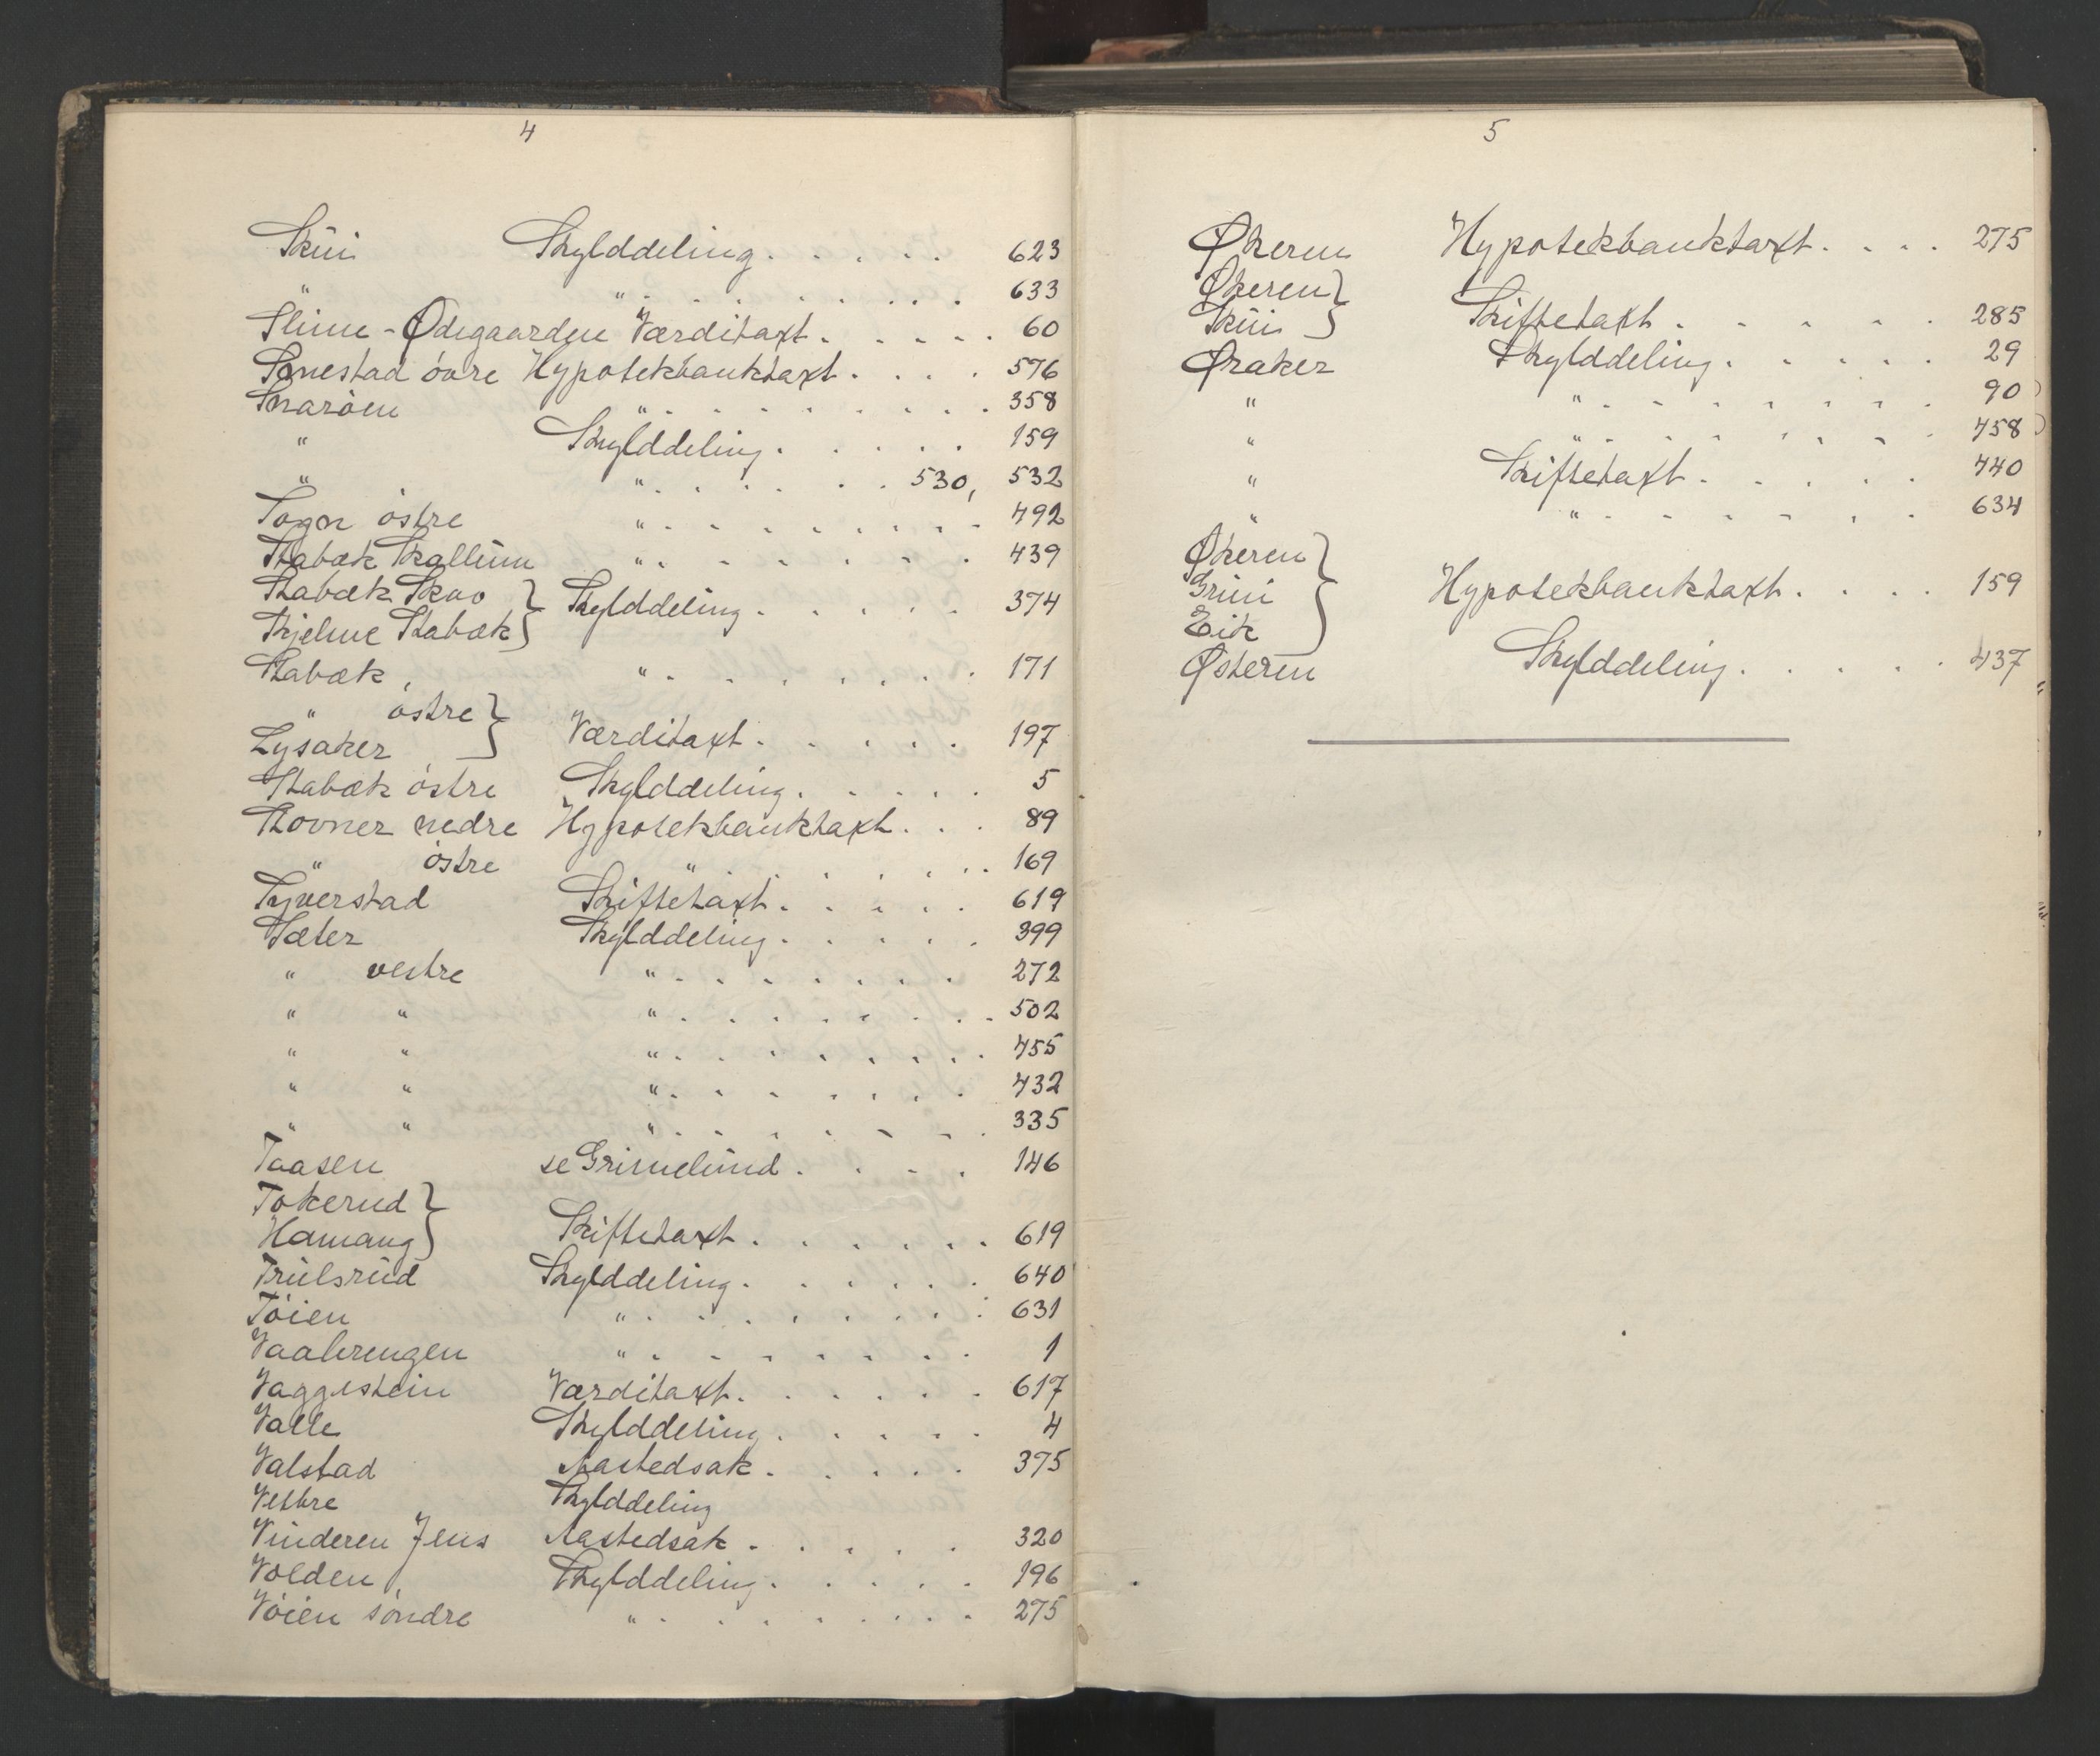 4
Skui Skylddeling. . . . . 623
" " . . . . . . . . 633
Slime-Ødegaarden Værditaxt. . . . . 60
Sonestad övre Hypotekbanktaxt. . . . 576
Snaröen " . . . . . . . . 358
" Skylddeling. . . . . 159
" " . . . . . . 530, 532
Sogn östre " . . . . . . . . 492
Stabæk Skallum " . . . . . . . 439
Stabæk Skao } Skylddeling. . . . . 374
Skjelme Stabæk }
Stabæk " . . . . . . . . 171
" östre }
Lysaker } Værditaxt. . . . . 197
Stabæk östre Skylddeling. . . . . 5
Stovner nedre Hypotekbanktaxt. . . 89
" östre " . . . . . . 169
Syverstad Skiftetaxt. . . . . 619
Sæter Skylddeling. . . . . 399
" vestre " . . . . . . . 272
" " " . . . . . . . . 502
" " " . . . . . . . . 455
" " " . . . . . . . 432
" " " . . . . . . . . 335
Taasen se Grimelund. . . . 146
Tokerud }
Hamang } Skiftetaxt. . . . . . 619
Trulsrud Skylddeling. . . . . . 640
Töien " . . . . . . . . 631
Vaalerengen " . . . . . . . 1
Vaggestein Værditaxt. . . . . . 617
Valle Skylddeling. . . . . 4
Valstad Aastedsak. . . . . 375
Vestre Skylddeling
Vinderen Jens Aastedsak. . . . . 320
Volden Skylddeling. . . . . 196
Vöien söndre " . . . . . . . . 275
5
Økeren Hypotekbanktaxt. . . . 275
Økeren }
Skui } Skiftetaxt. . . . . 285
Øraker Skylddeling. . . . . 29
" " . . . . . . . . 90
" " . . . . . . . 458
" Skiftetaxt. . . . . 440
" " . . . . . . . 634
Økeren }
Grini } Hypotekbanktaxt. . . . 159
Eik }
Østeren Skylddeling. . . . . 437